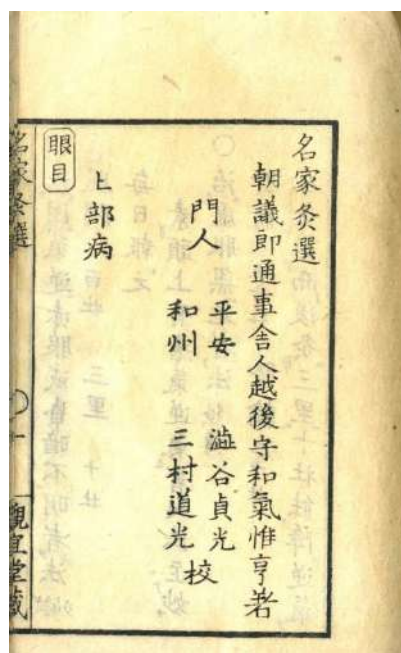 名家灸選
朝議郎通事舍人越後守和氣惟亨著
門人 平安 澁谷貞光
和州 三村道光 校
上部病
眼目
名家灸選
○十
觀宜堂藏